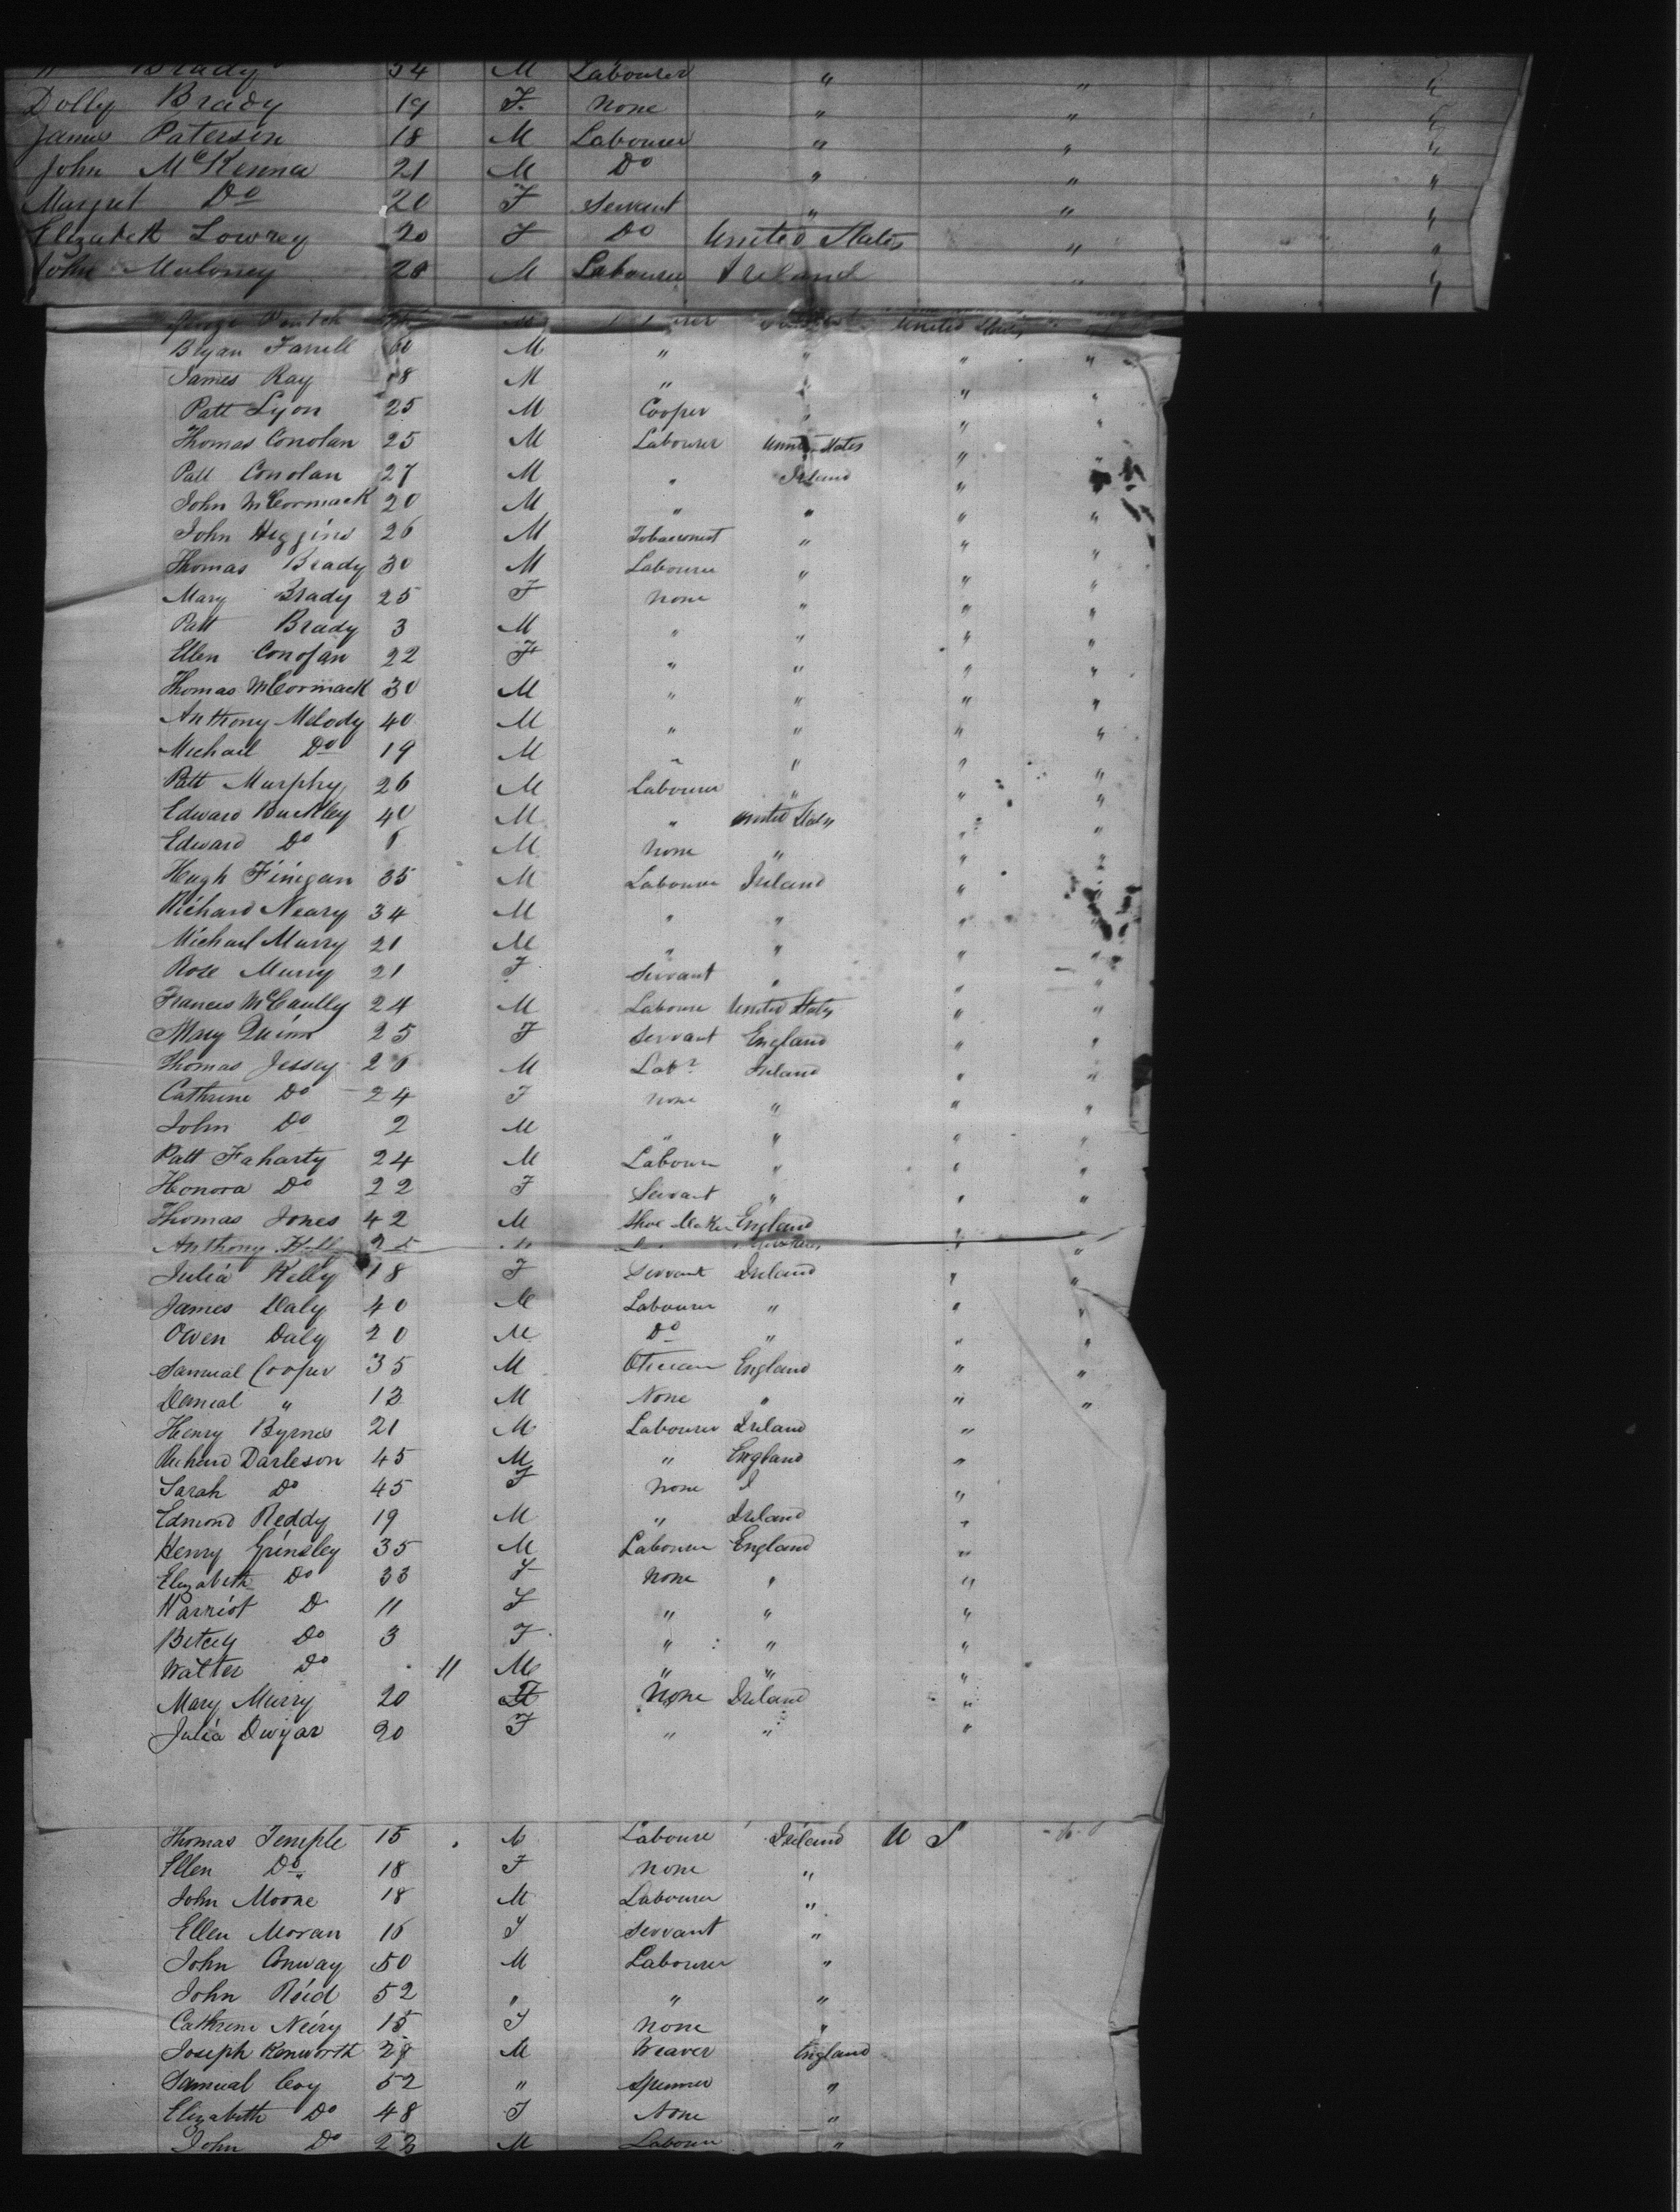 " Brady 54 M Labourer " " "
Dolly Brady 19 F. None " " "
James Paterson 18 M Labourer " " "
John McKenna 21 M Do " " "
Margret Do 20 F Servant " " "
Elizabeth Lowrey 20 F Do United States " "
John Maloney 20 M Labourer Ireland " "
M United States
Bryan Farrell 60 M " " " "
James Ray 18 M " " " "
Patt Lyon 25 M Cooper " " "
Thomas Conolan 25 M Labourer United States " "
Patt Conolan 27 M " Ireland " "
John McCormack 20 M " " " "
John Higgins 26 M Tobacconist " " "
Thomas Brady 30 M Labourer " " "
Mary Brady 25 F None " " "
Patt Brady 3 M " " " "
Ellen Conolan 22 F " " " "
Thomas McCormack 30 M " " " "
Anthony Melody 40 M " " " "
Michael Do 19 M " " " "
Patt Murphy 26 M Labourer " " "
Edward Buckley 40 M " United States " "
Edward Do M None " " "
Hugh Finigan 35 M Labourer Ireland " "
Richard Neary 34 M " " " "
Michael Murry 21 M " " " "
Rose Murry 21 F Servant " " "
Frances McCaully 24 M Laboure United States " "
Mary Quinn 25 F Servant England " "
Thomas Jessey 26 M Labr Ireland " "
Cathrine Do 24 F None " " "
John Do 2 M " " " "
Patt Faharty 24 M Labour " " "
Honora Do 22 F Servant " " "
Thomas Jones 42 M Shoe Maker England " "
Anthony 25 M " "
Julia Kelly 18 F Servant Ireland " "
James Daly 40 M Labourer " " "
Owen Daly 20 M Do " " "
Samual Cooper 35 M England " "
Danial " 13 M None " " "
Henry Byrnes 21 M Labourer Ireland "
Richard Darleson 45 M " England "
Sarah Do 45 F None "
Edmond Reddy 19 M " Ireland "
Henry Grinsley 35 M Labourer England "
Elizabeth Do 33 F None " "
Harriot D 11 F " " "
Betcey Do 3 F " " "
Walter Do 11 M " " "
Mary Murry 20 F None Ireland "
Julia Dwyar 20 F " " "
Thomas Temple 15 M Laboure Ireland U S
Ellen Do 18 F None "
John Moore 18 M Labourer "
Ellen Moran 16 F Servant "
John Conway 50 M Labourer "
John Reid 52 " " "
Cathrine Neiry 15 F None "
Joseph Kenworth 29 M Weaver England
Samual Coy 52 " Spinner "
Elizabeth Do 48 F None "
John Do 23 M Labour "